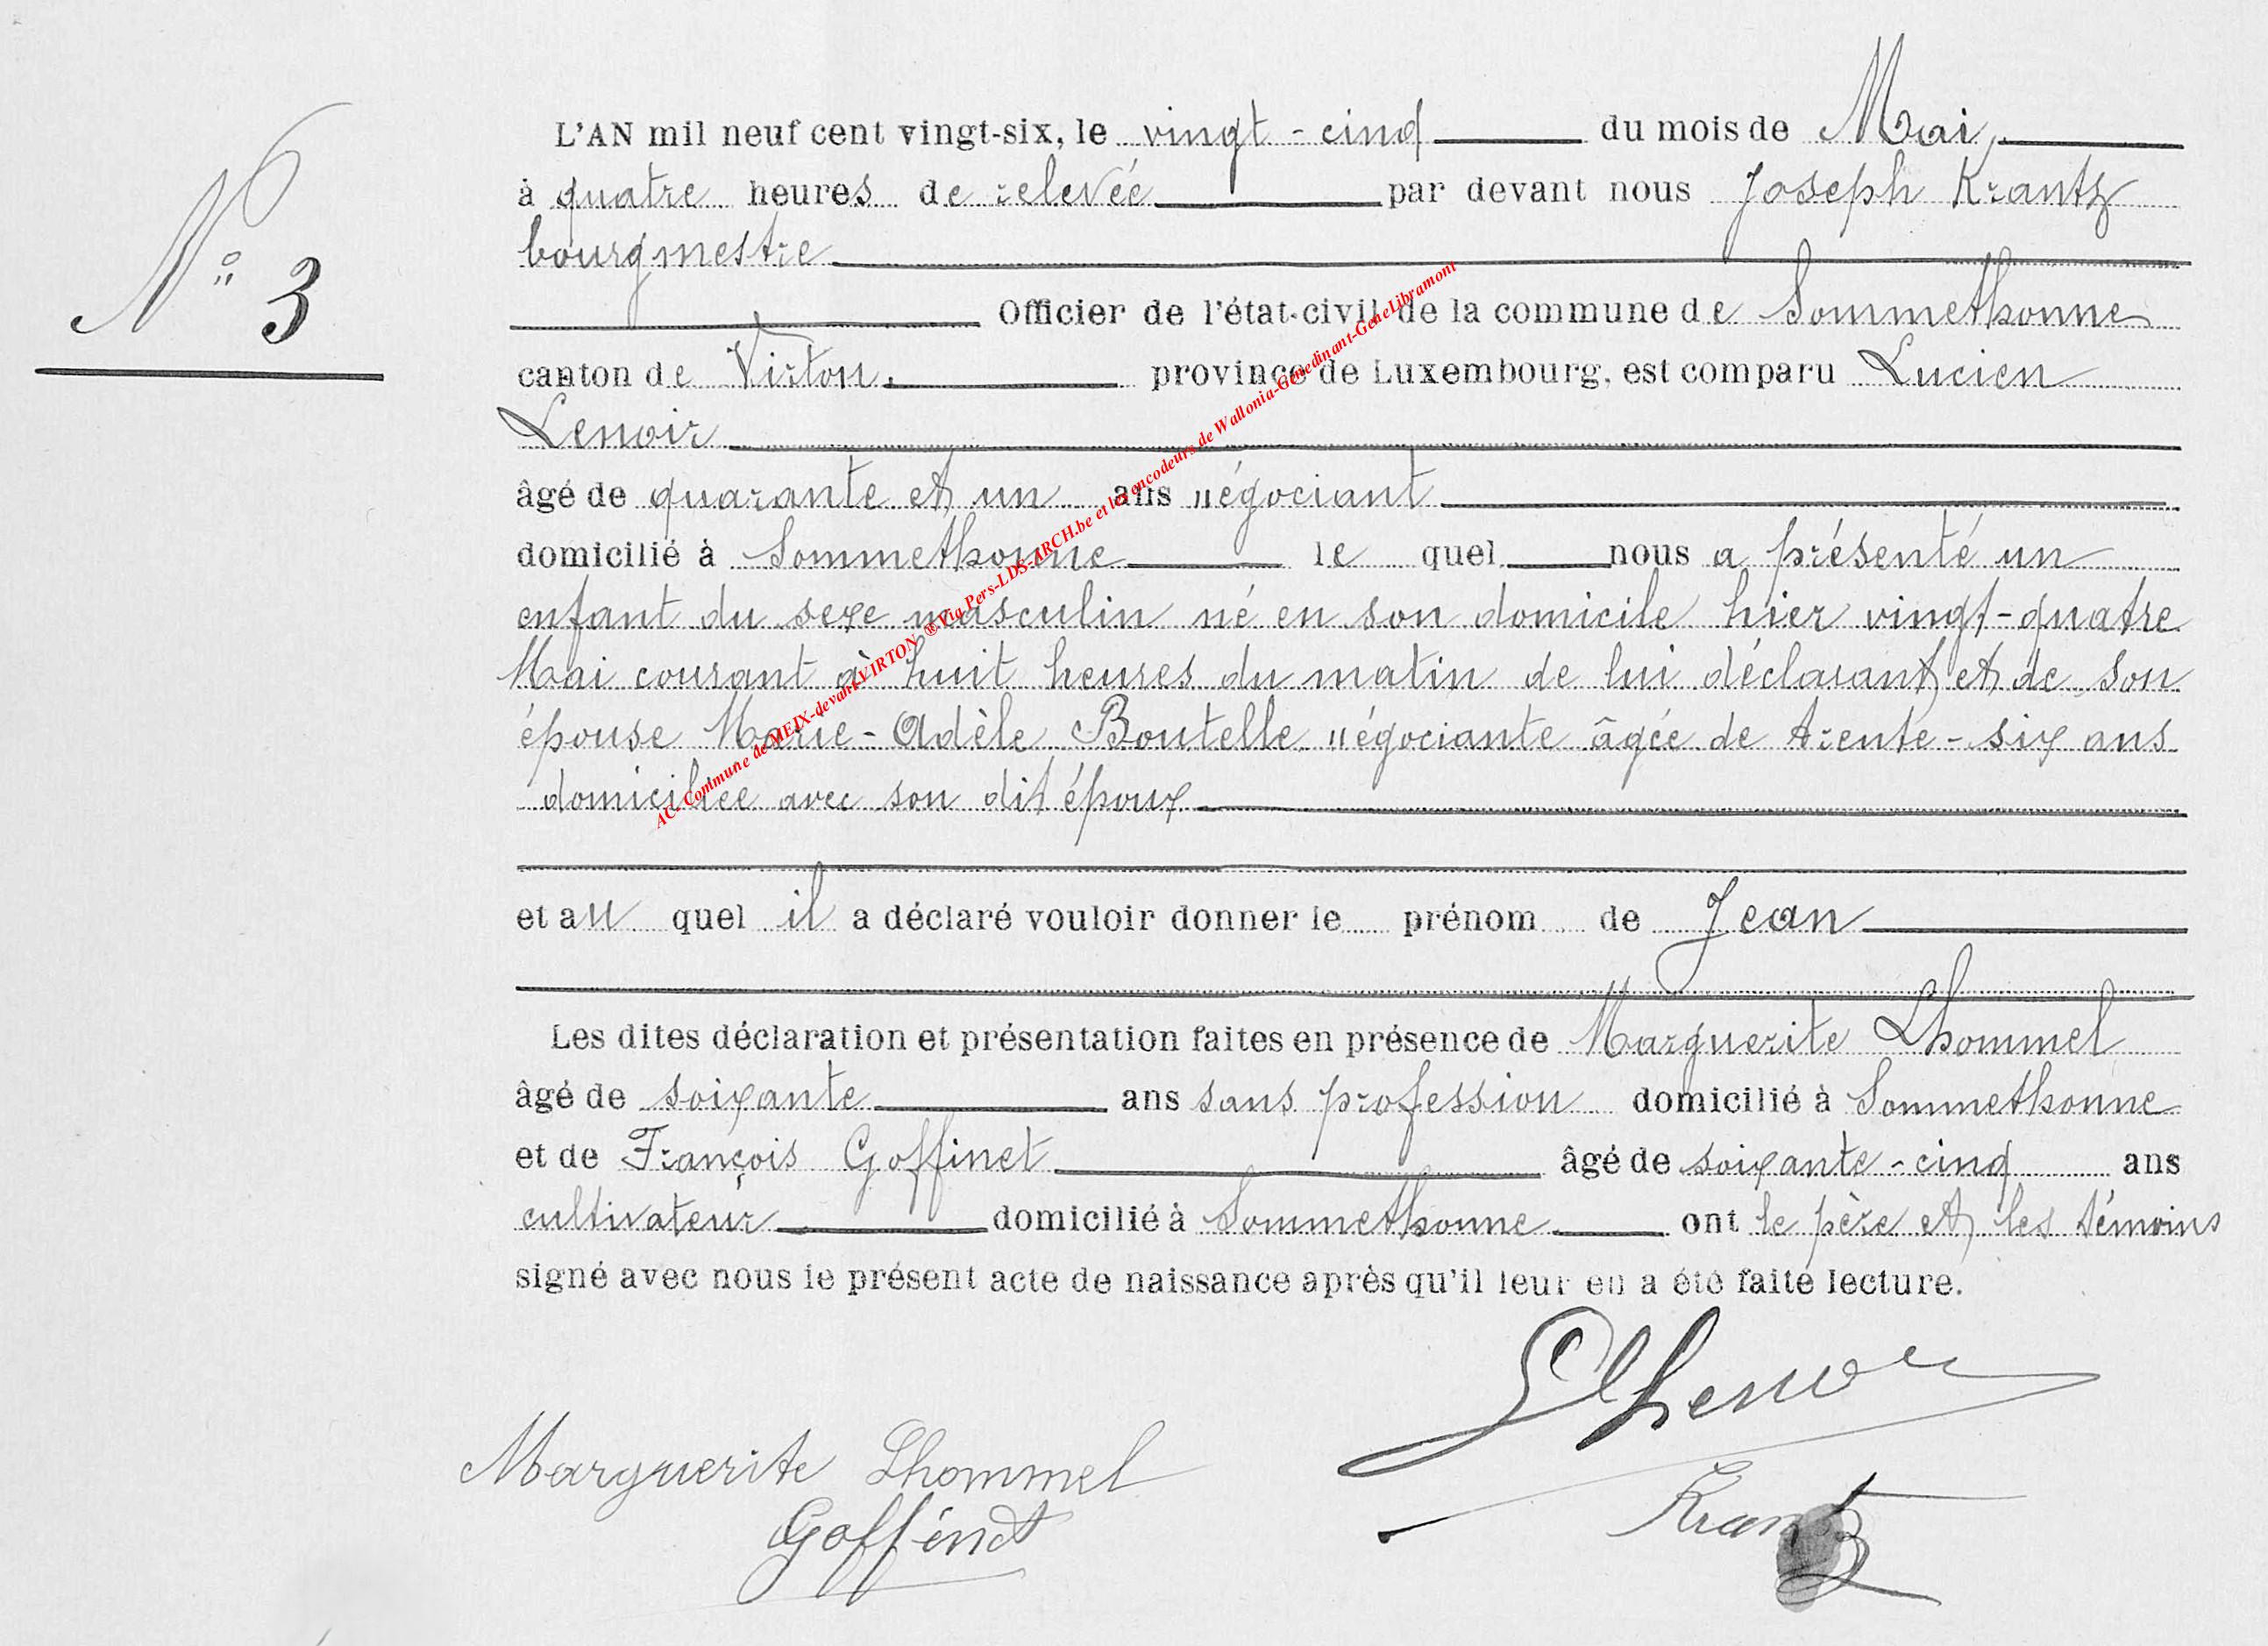 N° 3
L'AN mil neuf cent vingt-six, le vingt-cinq du mois de Mai,
à quatre heures de relevée par devant nous Joseph Krantz
bourgmestre
Officier de l'état-civil de la commune de Sommethonne
canton de Virton. province de Luxembourg, est comparu Lucien
Lenoir
âgé de quarante et un ans négociant
domicilié à Sommethonne le quel nous a présenté un
enfant du sexe masculin né en son domicile hier vingt-quatre
Mai courant à huit heures du matin de lui déclarant et de son
épouse Marie-Adèle Boutelle négociante âgée de trente-six ans
domiciliée avec son dit époux
et au quel il a déclaré vouloir donner le prénom de Jean
Les dites déclaration et présentation faites en présence de Marguerite Lhommel
âgé de soixante ans sans profession domicilié à Sommethonne
et de François Goffinet âgé de soixante-cinq ans
cultivateur domicilié à Sommethonne ont le père et les témoins
signé avec nous le présent acte de naissance après qu'il leur en a été faite lecture.
Marguerite Lhommel
Goffinet
Krantz
AC- Commune de MEIX-devant-VIRTON ® Via Pers-LDS-ARCH.be et les encodeurs de Wallonia-Genedinant-GeneLibramont